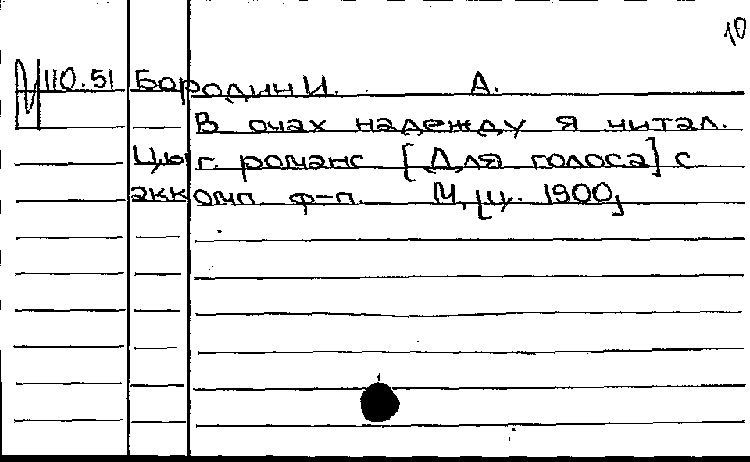 10
110.51 Бородин И. А.
В очах надежду я читал.
Цыг. романс [Для голоса] с
аккомп. ф-п. М, [ц. 1900]